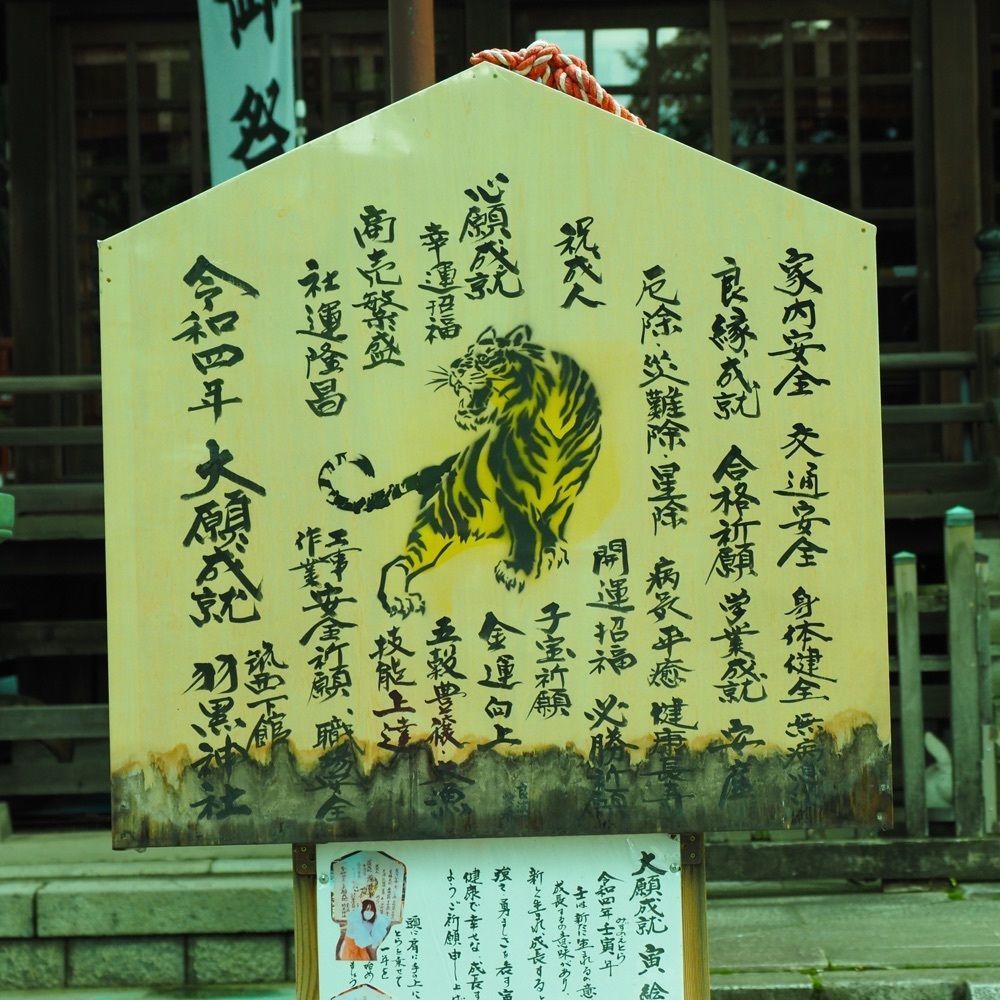 御祭
家内安全 交通安全 身体健全 無病息
良縁成就 合格祈願 学業成就 安産
厄除・災難除・星除 病気平癒 健康長寿
祝成人 開運招福 必勝祈願
子宝祈願
心願成就
金運向上
幸運招福
五穀豊穣 大漁
商売繁盛
技能上達
社運隆昌
工事作業安全祈願、職場安全
筑西下館
令和四年 大願成就 羽黒神社
大願成就 寅 絵
令和四年 壬寅年
みずのえとら
壬は新たに生れるの意
成長するの意味があり、
新しく生まれ成長すると
強く勇ましさを表す寅
健康で幸せな成長す
ようご祈願申し上げ
頭に肩に手の上に
とらを乗せて
一年を